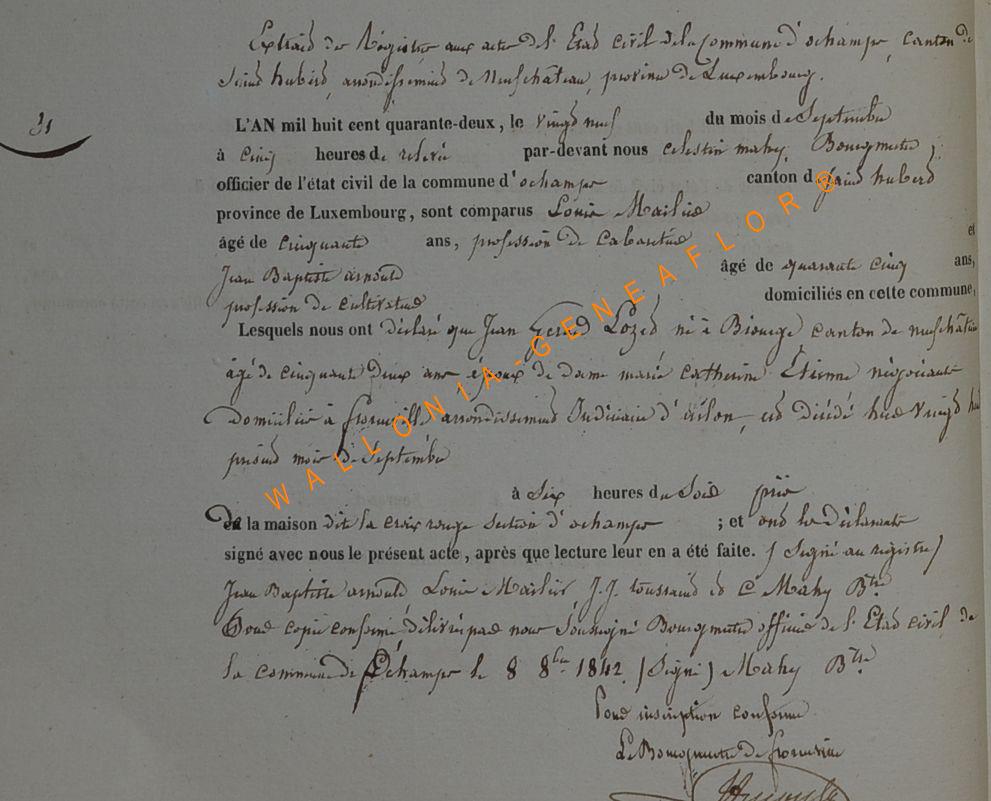 Extrait des Régistres aux actes de l'Etat civil de la Commune d'ochamps, canton de
Saint hubert, arrondissement de Neufchâteau, province de Luxembourg.
31
L'AN mil huit cent quarante-deux, le vingt neuf du mois de Septembre
à cinq heures de relevée par-devant nous celestin mahy, Bourgmestre,
officier de l'état civil de la commune d'ochamps canton de Saint hubert
province de Luxembourg, sont comparus Louis
âgé de cinquante ans, profession de Cabaretier et
Jean Baptiste arnould âgé de quarante cinq ans,
profession de cultivateur domiciliés en cette commune,
Lesquels nous ont déclaré que Jean Gerard Lozet né à Biourge canton de neufchâteau
âgé de cinquante deux ans époux de dame marie catherine Etienne négociante
domicilié à florenville arrondissement Judiciaire d'arlon, est décédé hier vingt huit
présent mois de Septembre
à Six heures du Soir près
de la maison dite la croix rouge section d'ochamps ; et ont les déclarants
signé avec nous le présent acte, après que lecture leur en a été faite. (Signé au registre)
Jean Baptiste arnould Louis J.J. toussaint et C. Mahy Btre.
Pour copie conforme délivrée par nous Soussigné Bourgmestre officier de l'Etat civil de
la commune de Ochamps le 8 8bre 1842. (Signé) Mahy Btre.
Pour inscription conforme
Le Bourgmestre de florenville
WALLONIA-GENEAFLOR®